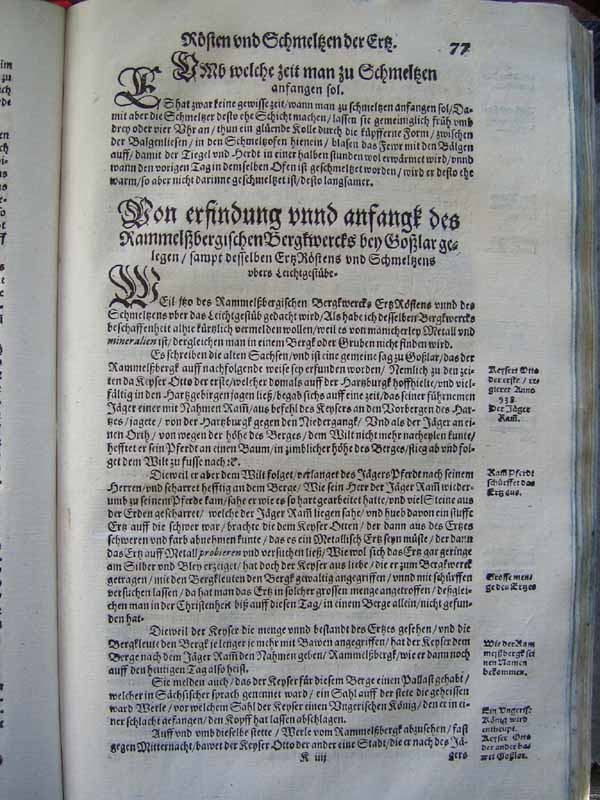 Rösten vnd Schmeltzen der Ertz.
77
VMb welche zeit man zu Schmeltzen
anfangen sol.
ES hat zwar keine gewisse zeit/wann man zu schmeltzen anfangen sol/Da-
mit aber die Schmeltzer desto ehe Schicht machen/lassen sie gemeiniglich früh vmb
drey oder vier Vhr an/thun ein glüende Kolle durch die küpfferne Form/zwischen
der Balgenliesen/in den Schmeltzofen hienein/blasen das Fewr mit den Bälgen
auff/damit der Tiegel vnd Herdt in einer halben stunden wol erwärmet wird/vnnd
wann den vorigen Tag in demselben Ofen ist geschmeltzet worden/wird er desto ehe
warm/so aber nicht darinne geschmeltzet ist/desto langsamer.
Von erfindung vnnd anfangk des
Rammelßbergischen Bergkwercks bey Goßlar ge-
legen/sampt desselben Ertz Röstens vnd Schmeltzens
vbers Leichtgestübe.
WEil itzo des Rammelßbergischen Bergkwercks Ertz Röstens vnnd des
Schmeltzens vber das Leichtgestüb gedacht wird/Als habe ich desselben Bergkwercks
beschaffenheit alhie kürtzlich vermelden wollen/weil es von mancherley Metall vnd
mineralien ist/dergleichen man in einem Berg oder Gruben nicht finden wird.
Es schreiben die alten Sachsen/vnd ist eine gemeine sag zu Goßlar/das der
Rammelßbergk auff nachfolgende weise sey erfunden worden/Nemlich zu den zei-
ten da Keyser Otto der erste/welcher domals auff der Hartzburgk hoffhielte/vnd viel-
fältig in den Hartzgebirgen jagen ließ/begab sichs auff eine zeit/das seiner fürnemen
Jäger einer mit Nahmen Ram̃/aus befehl des Keysers an den Vorbergen des Har-
tzes/jagete/von der Hartzburgk gegen den Niedergangk/Vnd als der Jäger an ei-
nen Orth/von wegen der höhe des Berges/dem Wilt nicht mehr nacheylen kunte/
hefftet er sein Pferdt an einen Baum/in zimblicher höhe des Berges/stieg ab vnd fol-
get dem Wilt zu fusse nach:
Dieweil er aber dem Wilt folget/verlanget des Jägers Pferdt nach seinem
Herren/vnd scharret hefftig an dem Berge/Wie sein Herr der Jäger Ram̃ wieder-
umb zu seinem Pferde kam/sahe er wie es so hart gearbeitet hatte/vnd viel Steine aus
der Erden gescharret/welche der Jäger Ram̃ liegen sahe/vnd hueb davon ein stuffe
Ertz auff die schwer war/brachte die dem Keyser Otten/der dann aus des Ertzes
schweren vnd farb abnehmen kunte/das es ein Metallisch Ertz seyn müste/der dann
das Ertz auff Metall probieren vnd versuchen ließ/Wiewol sich das Ertz gar geringe
am Silber vnd Bley erzeiget/hat doch der Keyser aus liebe/die er zum Bergkwerck
getragen/mit den Bergkleuten den Bergk gewaltig angegriffen/vnnd mit schürffen
versuchen lassen/da hat man das Ertz in solcher grossen menge angetroffen/deßglei-
chen man in der Christenheit biß auff diesen Tag/in einem Berge allein/nicht gefun-
den hat.
Dieweil der Keyser die menge vnnd bestandt des Ertzes gesehen/vnd die
Bergkleute den Bergk je lenger je mehr mit Bawen angegriffen/hat der Keyser dem
Berge nach dem Jäger Ram̃ den Nahmen geben/Rammelßbergk/wie er dann noch
auff den heutigen Tag also heist.
Sie melden auch/das der Keyser für diesem Berge einen Pallast gehabt/
welcher in Sächsischer sprach genennet ward/ein Sahl auff der stete die geheissen
ward Werle/vor welchem Sahl der Keyser einen Vngerischen König/den er in ei-
ner schlacht gefangen/den Kopff hat lassen abschlagen.
Auff vnd vmb dieselbe stette/Werle vom Rammelßbergk abzusehen/fast
gegen Mitternacht/bawet der Keyser Otto der ander eine Stadt/die er nach des Jä-
K iiij
gers
Keysers Otto
der erste/re-
gieret Anno
938.
Der Jäger
Ram̃.
Ram̃ Pferdt
schürffet das
Ertz aus.
Grosse men-
ge des Ertzes
Wie der Ram
melßbergk sei
nen Namen
bekommen.
Ein Vngerisch
König wird
entheupt.
Keyser Otto
der ander ba-
wet Goßlar.